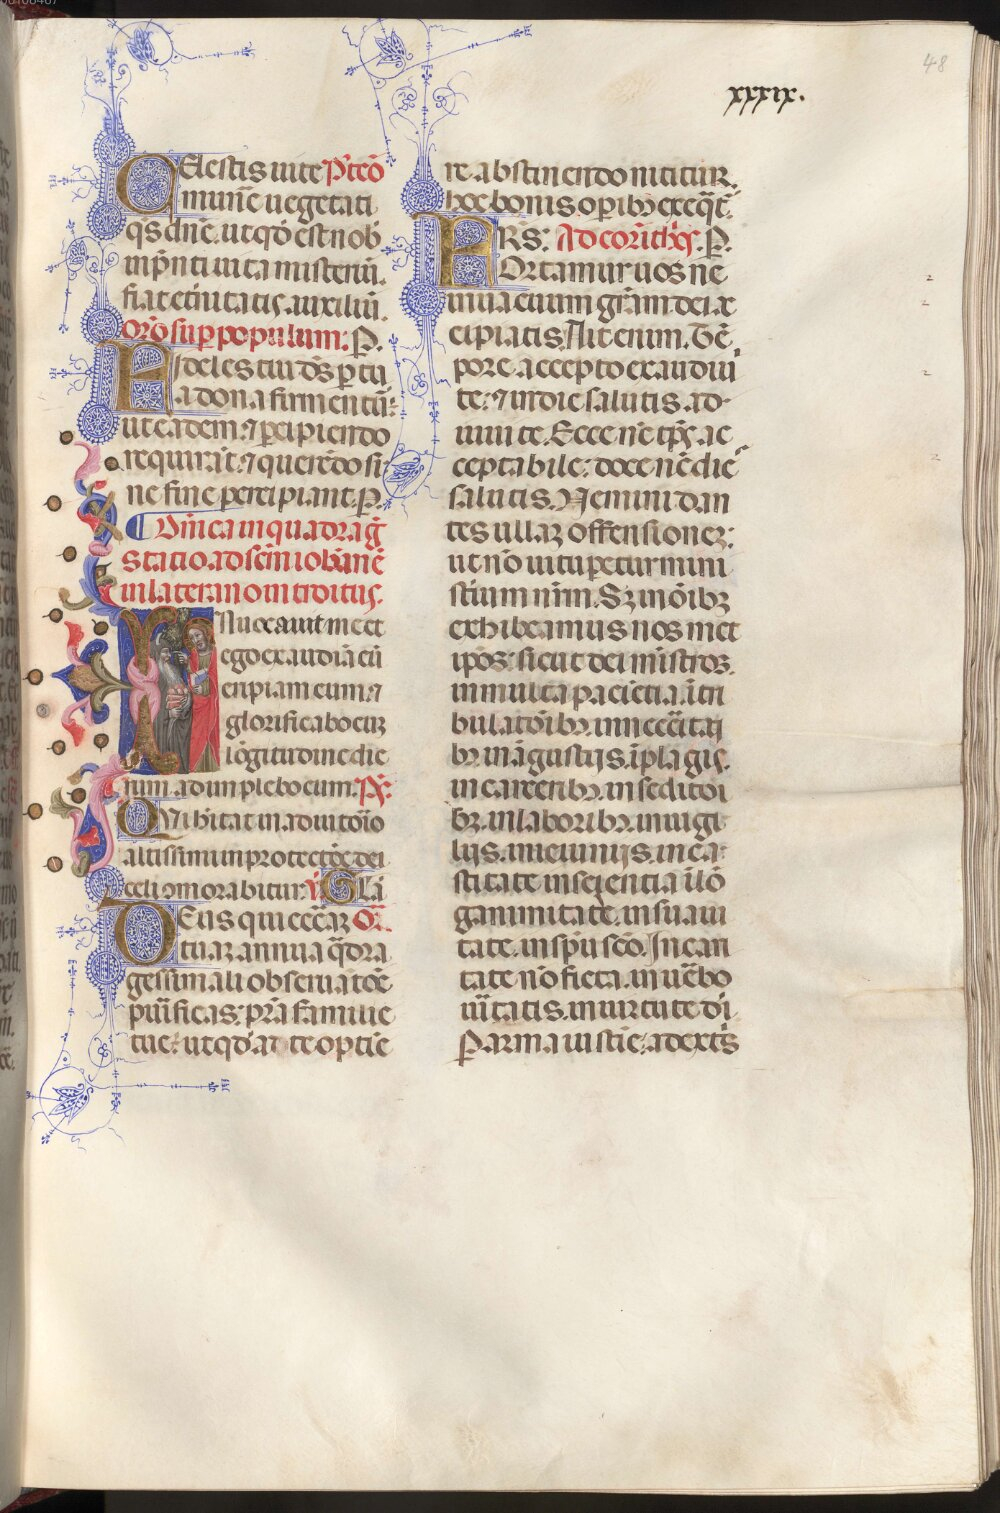 48
xxxix.
Celestis uite P̄ cō
munēe uegetati
qs dn̄e. ut qđ est nob
in p̄nti uita misteriū.
fiat et̄nitatis auxiliū.
Or̄o sup̄ populum: P.
Fideles tui ds̄ p̄ tu
a dona firmentur:
ut eadem ⁊ p̄cipiendo
requirāt. ⁊ querēdo si
ne fine percipiant. P.
Dn̄ica in quadraḡ
Statio ad sc̄m ioh̄anē
in laterano introitus.
Inuocauit me et
ego exaudiā eū
eripiam eum ⁊
glorificabo euȝ
lōgitudine die
rum adimplebo eum. Ps̄.
Qui h̄itat in adiutōio
altissimi in protectōe dei
celi ↄmorabitur. V̄ Glā
Deus qui eccl̄iaȝ Or̄.
tuaȝ annua q̄dra
gessimali obseruatōe
puificas: pr̄a familie
tue: ut qđ a te optīe
re abstinendo nititur.
hoc bonis op̄ibȝ exeq̄t̄.
FRS: Ad corīthi᷒os. P.
Ortamur uos ne
in uacuum gr̄am dei re
cipiatis. Ait enim. Tē
pore accepto exaudiui
te: ⁊ in die salutis ad
iuui te. Ecce nc̄ tp̄s ac
ceptabile: ecce nc̄ dies
salutis. Nemini dan
tes ullaȝ offensioneȝ:
ut nō uitup̄etur mini
sterium nr̄m. Sȝ in ōibȝ
exhibeamus nos met
ip̄os: sicut dei mīstros.
in multa paciētia. ī tri
bulatōibȝ. in nec̄c̄itati
bȝ. in āgustijs. ī plagis.
in carceribȝ. in seditōi
bȝ. in laboribȝ. in uigi
lijs. in ieiunijs. in ca
stitate in sciencia ī lō
ganimitate. in suaui
tate. in sp̄u sc̄o. In cari
tate nō ficta. in uērbo
ūitatis. in uirtute dī.
Per arma iustīe: a dext̄s